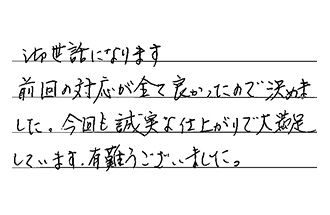 お世話になります
前回の対応が全て良かったので決めま
した。今回も誠実な仕上がりで大満足
しています。有難うございました。